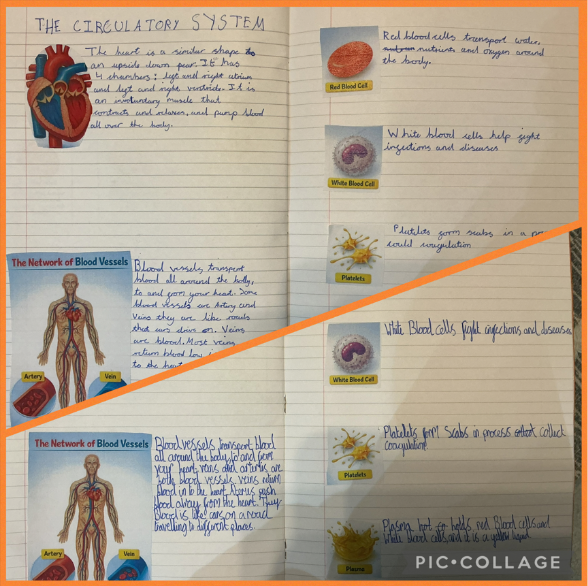 THE CIRCULATORY SYSTEM
The heart is a similar shape to
an upside down pear. It has
4 chambers: left and right atrium
and left and right ventricle. It is
an involuntary muscle that
contracts and relaxes, and pump blood
all over the body.
The Network of Blood Vessels
Artery
Vein
Blood vessels, transport
blood all around the body,
to and from your heart. Some
blood vessels are Artery and
Veins they are like roads
that cars drive on. Veins
are blood. Most veins
return blood low
to the heart
Red blood cells transport water,
nutrients and oxygen around
the body.
Red Blood Cell
White blood cells help fight
infections and diseases
White Blood Cell
Platelets form scabs in a
could coagulation
Platelets
The Network of Blood Vessels
Artery
Vein
Blood vessels transport blood
all around the body, to and from
your heart. veins and arteries are
blood vessels. veins return
blood in to the heart. push
blood away from the heart. They
Blood is like cars on a road
travelling to different places.
White Blood cells fight infections and diseases
White Blood Cell
Platelets form Scabs in process collect
coagulation
Platelets
Plasma hot or holds red Blood cells and
white blood cells and it is a yellow liquid
Plasma
PIC•COLLAGE